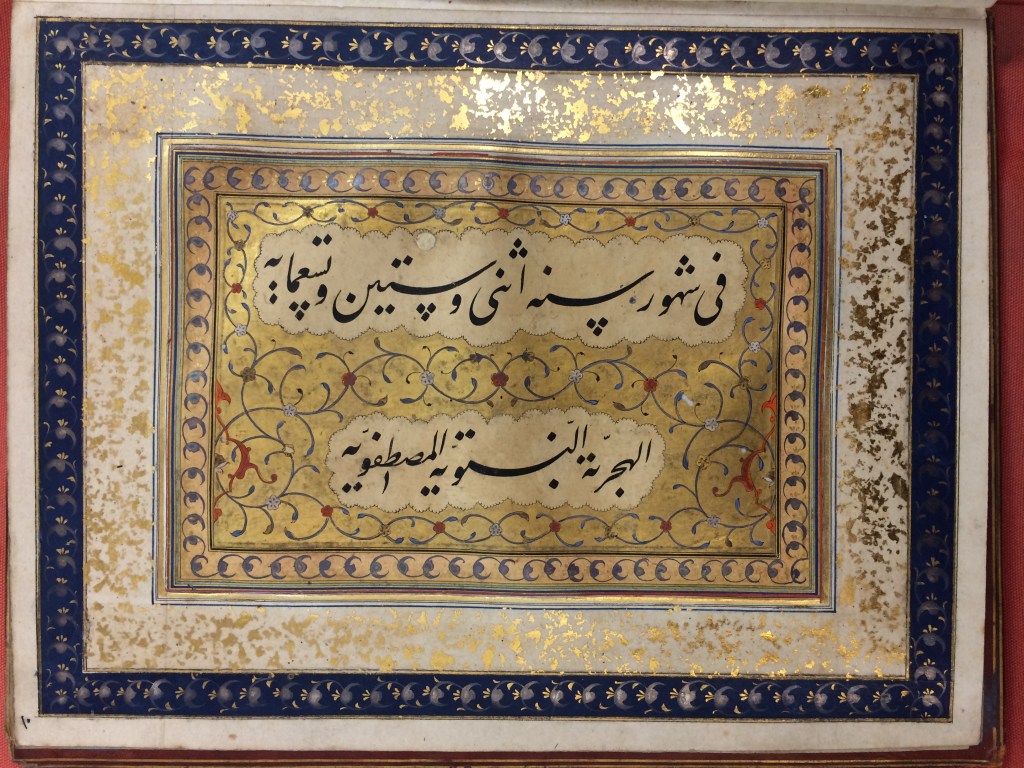 فی شهور سنه اثنی و ستین و تسعمایه
الهجریة النبویة المصطفویه
١٠